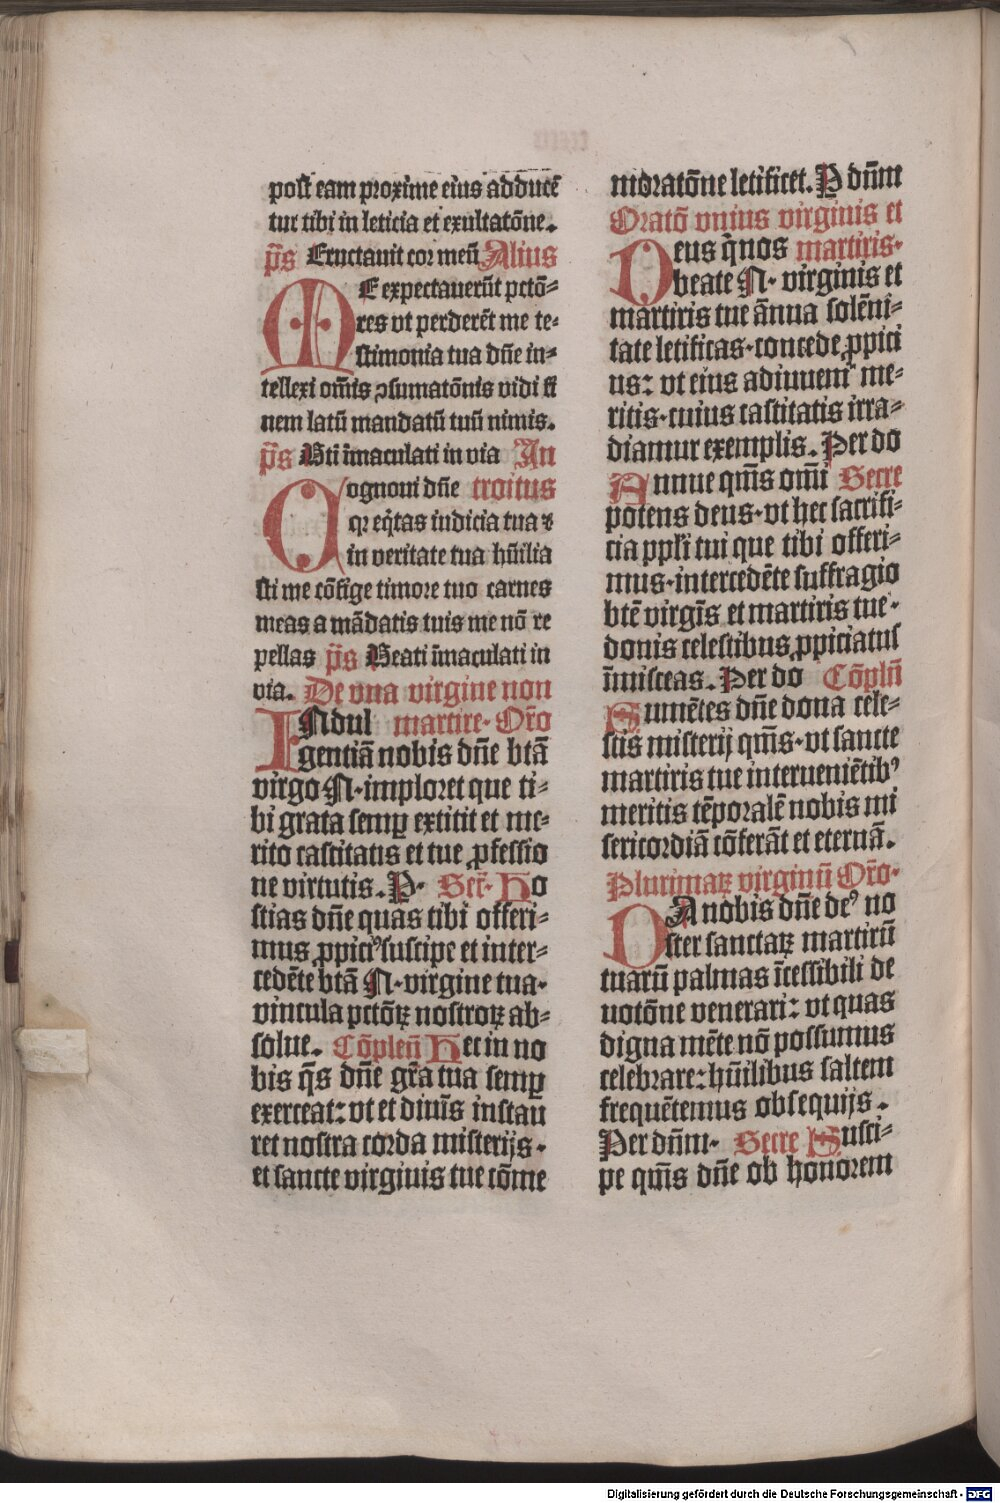 post eam proxime eius adducẽ
tur tibi in leticia et exultatõne.
p̃s Eructauit cor meũ Alius
ME expectauerũt pctõ⸗
res vt perderẽt me te⸗
stimonia tua dñe in⸗
tellexi om̃is ꝯsumatõnis vidi fi
nem latũ mandatũ tuũ nimis.
p̃s Bti ĩmaculati in via An
Cognoui dñe troitus
qr eq̃tas iudicia tua ⁊
in veritate tua hũilia
sti me cõfige timore tuo carnes
meas a mãdatis tuis me nõ re
pellas p̃s Beati ĩmaculati in
via. De vna virgine non
INdul martire. Orõ
gentiã nobis dñe btã
virgo N. imploret que ti⸗
bi grata semꝑ extitit et me⸗
rito castitatis et tue ꝓfessio
ne virtutis. P. Secr̃. Ho
stias dñe quas tibi offeri⸗
mus ꝓpiciꝰ suscipe et inter⸗
cedẽte btã N. virgine tua.
vincula pctõꝝ nostroꝝ ab⸗
solue. Cõpleñ Hec in no
bis q̃s dñe gr̃a tua semꝑ
exerceat: vt et diuĩs instau
ret nostra corda misterijs.
et sancte virginis tue cõme
moratõne letificet. P dñm
Oratõ vnius virginis et
Deus q̃ nos martiris.
beate N. virginis et
martiris tue ãnua solẽni⸗
tate letificas. concede ꝓpici
us: vt eius adiuuem̃ me⸗
ritis. cuius castitatis irra⸗
diamur exemplis. Per do
Annue qm̃s om̃i Secre
potens deus. vt hec sacrifi⸗
cia ppli tui que tibi offeri⸗
mus. intercedẽte suffragio
btẽ virgĩs et martiris tue.
donis celestibus ꝓpiciatus
ĩmisceas. Per do Cõplñ
Sumẽtes dñe dona cele⸗
stis misterij qm̃s. vt sancte
martiris tue interueniẽtibꝰ
meritis tẽporalẽ nobis mi
sericordiã cõferãt et eternã.
Plurimaꝝ virginũ Orõ.
DA nobis dñe deꝰ no
ster sanctaꝝ martirũ
tuarũ palmas ĩcessibili de
uotõne venerari: vt quas
digna mẽte nõ possumus
celebrare: hũilibus saltem
frequẽtemus obsequijs.
Per dñm. Secre Susci⸗
pe qm̃s dñe ob honorem
Digitalisierung gefördert durch die Deutsche Forschungsgemeinschaft - DFG